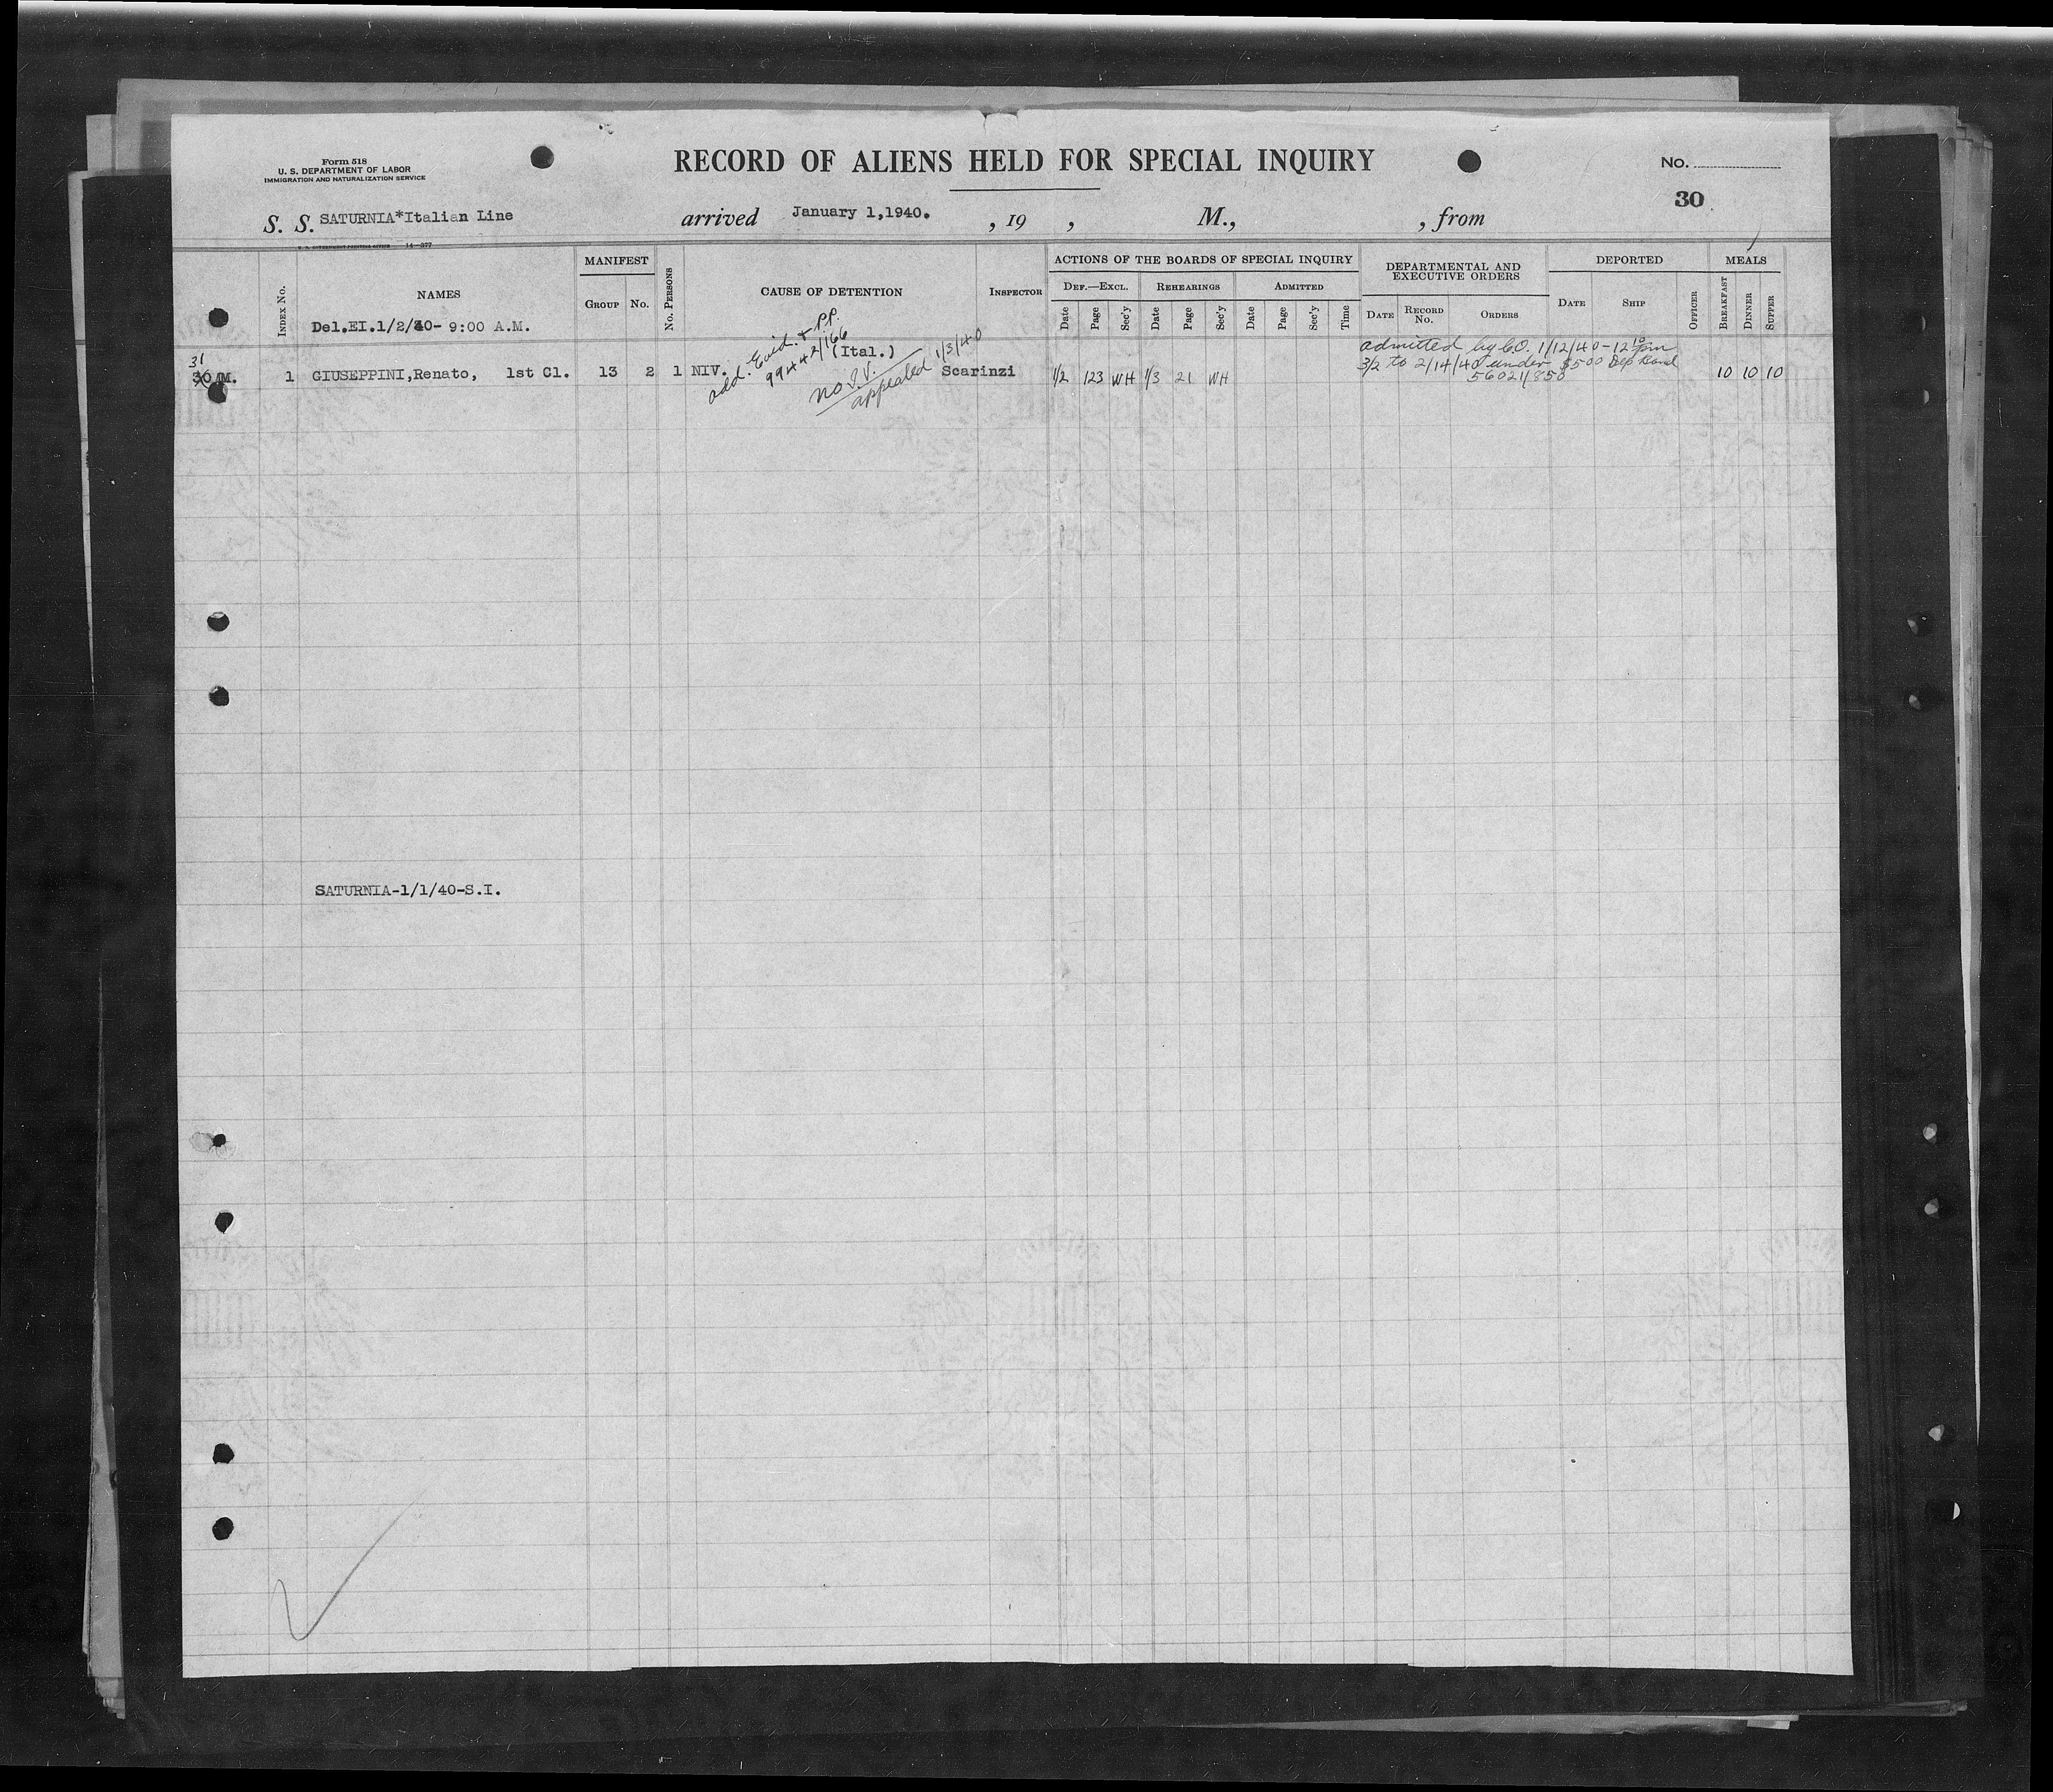 Form 518
U. S. DEPARTMENT OF LABOR
IMMIGRATION AND NATURALIZATION SERVICE
RECORD OF ALIENS HELD FOR SPECIAL INQUIRY
No.
30
S. S. SATURNIA*Italian Line arrived January 1,1940. , 19 , M., , from
14—377
INDEX No.
NAMES
Del.EI.1/2/40- 9:00 A.M.
MANIFEST
GROUP No.
No. PERSONS
CAUSE OF DETENTION
INSPECTOR
ACTIONS OF THE BOARDS OF SPECIAL INQUIRY
DEF.—EXCL. REHEARINGS ADMITTED
Date Page Sec'y Date Page Sec'y Date Page Sec'y Time
DEPARTMENTAL AND
EXECUTIVE ORDERS
DATE RECORD No. ORDERS
DEPORTED
DATE SHIP OFFICER
MEALS
BREAKFAST DINNER SUPPER
31
30/M. 1 GIUSEPPINI,Renato, 1st Cl. 13 2 1 NIV. (Ital.) Scarinzi 1/2 123 WH 1/3 21 WH 10 10 10
add. Evid. & P.P.
99442/166
no I.V.
appealed 1/3/40
admitted by C.O. 1/12/40-12 10 pm
3/2 to 2/14/40 under $500 Dep Bond
56021/850
SATURNIA-1/1/40-S.I.